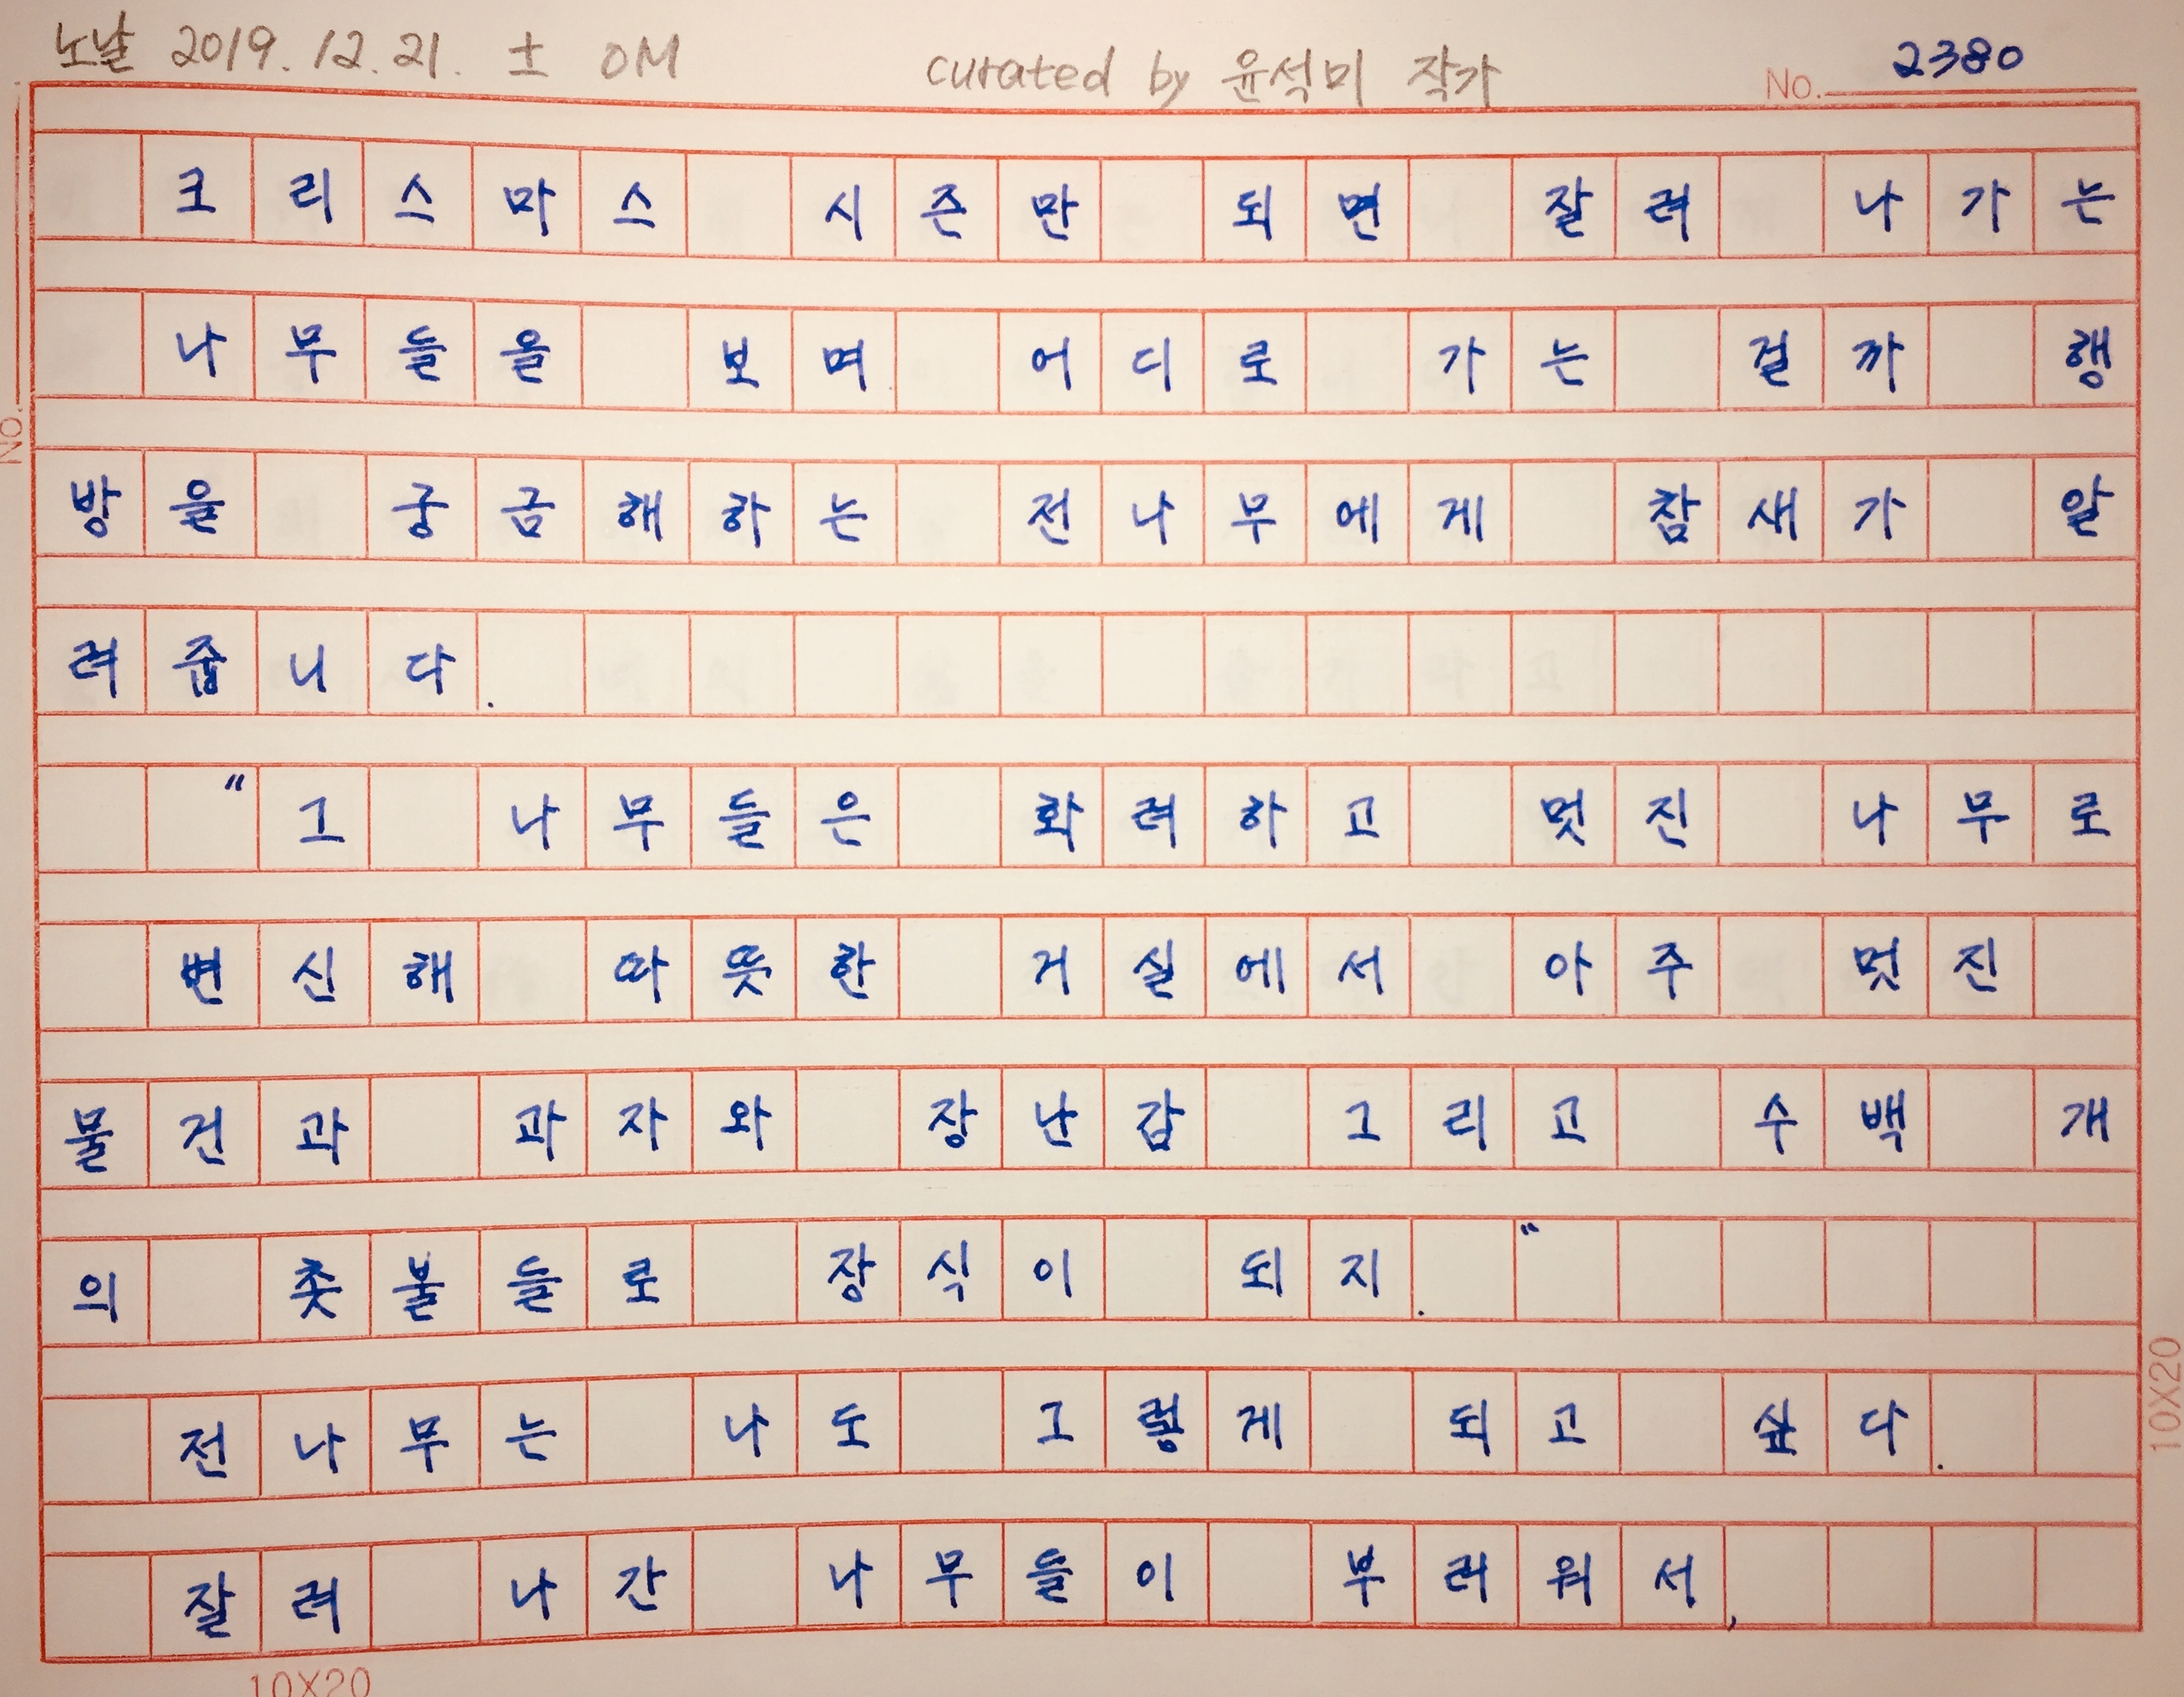 노날 2019.12.21. 土 OM curated by 윤석미 작가 No. 2380
크리스마스 시즌만 되면 잘려 나가는
나무들을 보며 어디로 가는 걸까 행
방을 궁금해하는 전나무에게 참새가 알
려줍니다.
"그 나무들은 화려하고 멋진 나무로
변신해 따뜻한 거실에서 아주 멋진
물건과 과자와 장난감 그리고 수백 개
의 촛불들로 장식이 되지."
전나무는 나도 그렇게 되고 싶다.
잘려 나간 나무들이 부러워서,
No.
10X20
10X20